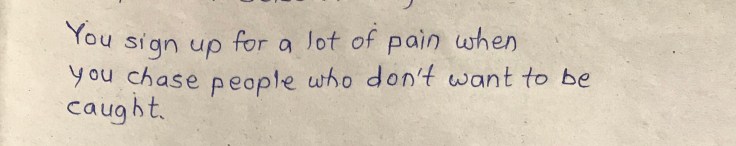 You sign up for a lot of pain when
you chase people who don't want to be
caught.